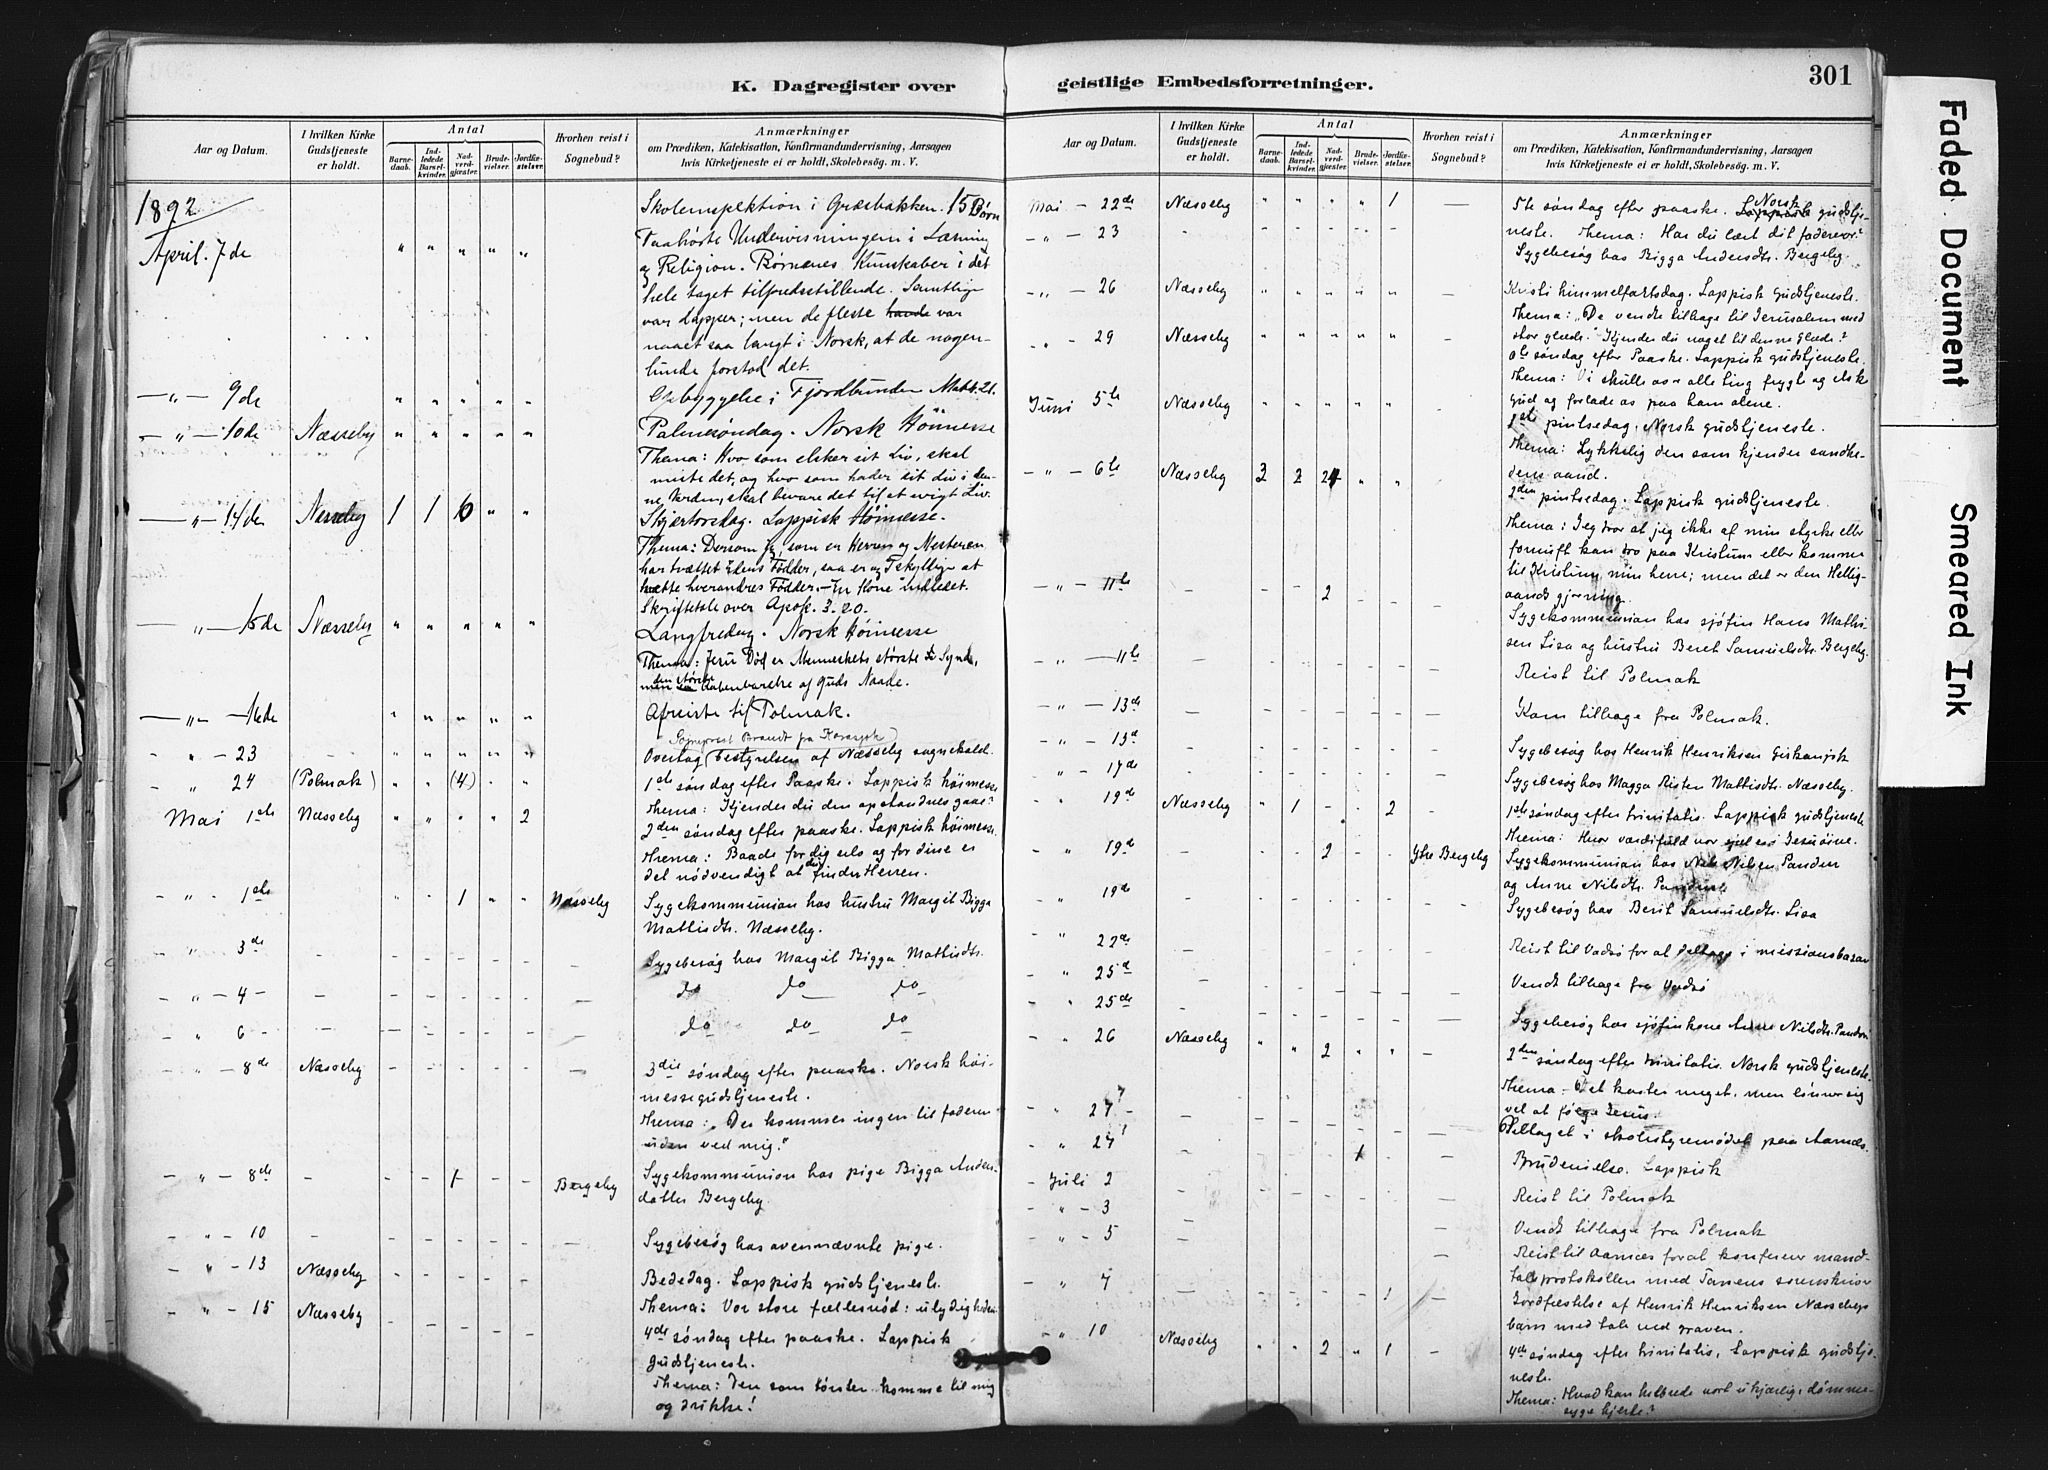 K. Dagregister over
Aar og Datum.
I hvilken Kirke Gudstjeneste er holdt.
Antal
Barnedaab.
Indledede Barselkvinder.
Nadverdgjæster.
Brudevielser.
Jordfæstelser.
Hvorhen reist i Sognebud?
Anmærkninger
om Prædiken, Katekisation, Konfirmandundervisning, Aarsagen
hvis Kirketjeneste ei er holdt, Skolebesøg. m. V.
1892
April. 7de " " " " " Skoleinspektion i Græsbakken. 15 Børn
Paahørte Undervisningen i Læsning
og Religion. Børnenes Kunskaber i det
hele taget tilfredsstillende. Samtlige
var Lapper; men de fleste havde var
naaet saa langt i Norsk, at de nogen-
lunde forstod det.
— " — 9de " " " " " Opbyggelse i Fjordbunden Matth. 21.
— " — 10de Næsseby " " " " " Palmesøndag. Norsk Höimesse
Thema: Hvo som elsker sit Liv, skal
miste det, og hvo som hader sit Liv i den-
ne Verden, skal bevare det til et evigt Liv.
— " — 14de Næsseby 1 1 6 " " Skjærtorsdag. Lappisk Høimesse.
Thema: Dersom jeg, som er Herren og Mesteren
har tvættet Eders Fødder, saa er og I skyldige at
tvætte hverandres Fødder. — En Kone indledet.
Skriftetale over Apok. 3. 20.
— " — 15de Næsseby " " " " " Langfredag. Norsk Høimesse
Thema: Jesu Død er Menneskets største Synd,
den største
men Aabenbarelse af Guds Naade.
— " — 16de " " " " " Afreiste til Polmak.
Sogneprest Brandt på Karasjok
- " - 23 " " " " " Overtog bestyrelsen af Næsseby sognekald.
- " 24 (Polmak) " " (4) " " 1ste søndag efter Paaske. Lappisk høimesse
Thema: Kjender du den opstandnes gave?
Mai 1ste Næsseby " " " " 2 2den søndag efter paaske. Lappisk høimesse.
Thema: Baade for dig selv og for dine er
det nødvendigt at du finder Herren.
- " - 1ste " " 1 " " Næsseby Sygekommunion hos hustru Margit Bigga
Mattisdtr. Næsseby.
- " 3de - - - - - - Sygebesøg hos Margit Bigga Mattisdtr.
- " - 4 - - - - - - - do do do
- " 6 - - - - - - - do do do
- " - 8de Næsseby - - - - - - 3die søndag efter paaske. Norsk høi-
messegudstjeneste.
Thema: "Der kommer ingen til faderen
uden ved mig."
- " - 8de - - - 1 - - Bergeby Sygekommunion hos pige Bigga Anders-
datter Bergeby.
- " - 10 - - - - - - - Sygebesøg hos ovennævnte pige.
- " - 13 Næsseby - - - - - Bededag. Lappisk gudstjeneste.
Thema: Vor store fællesnød: ulydigheden.
- " - 15 Næsseby - - - - - 4de søndag efter paaske. Lappisk
gudstjeneste.
Thema: Den som tørster komme til mig
og drikke!
geistlige Embedsforretninger.
301
Aar og Datum.
I hvilken Kirke Gudstjeneste er holdt.
Antal
Barnedaab.
Indledede Barselkvinder.
Nadverdgjæster.
Brudevielser.
Jordfæstelser.
Hvorhen reist i Sognebud?
Anmærkninger
om Prædiken, Katekisation, Konfirmandundervisning, Aarsagen
hvis Kirketjeneste ei er holdt, Skolebesøg. m. V.
Mai - 22de Næsseby " " " " 1 — 5te søndag efter paaske. Lappisk Norsk gudstje-
neste. Thema: Har du lært dit fadervor?
- " - 23 - - - - - - Sygebesøg hos Bigga Andersdtr. Bergeby.
- " - 26 Næsseby " " " " " — Kristi himmelfartsdag. Lappisk gudstjeneste.
Thema: "De vendte tilbage til Jerusalem med
stor glæde." Kjender du noget til denne Glæde?
" - 29 Næsseby " " " " " 6te søndag efter Paaske. Lappisk gudstjeneste.
Thema: Vi skulle over alle ting frygte og elske
Gud og forlade os paa ham alene.
Juni 5te Næsseby " " " " " - 1ste pintsedag. Norsk gudstjeneste.
Thema: Lykkelig den som kjender sandhe-
dens aand.
- " - 6te Næsseby 3 2 24 " " 2den pintsedag. Lappisk gudstjeneste.
Thema: Jeg tror at jeg ikke af min styrke eller
fornuft kan tro paa Kristum eller komme
til Kristum min herre; men det er den Hellig-
aands gjerning.
- " - 11te - - - 2 - - - Sygekommunion hos sjöfin Hans Mathi-
sen Lisa og hustru Beret Samuelsdtr. Bergeby.
- " - 11te - - - - - - - Reist til Polmak
- " - 13de - - - - - - - Kom tilbage fra Polmak.
- " - 13d - - - - - - - Sygebesøg hos Henrik Henriksen
- " - 17de - - - - - - - Sygebesøg hos Magga Risten Mattisdtr. Næsseby.
" 19de Næsseby " 1 - - 2 - 1ste søndag efter trinitatis. Lappisk gudstjeneste
Thema: Hvor værdifuld vor sjel er i Jesu øine.
" 19de - - - 2 - - Ytre Bergeby Sygekommunion hos Nils Nilsen Pander
og Anne Nilsdtr. Pander
" 19de - - - - - - - Sygebesøg hos Berit Samuelsdtr. Lisa
- " 22de - - - - - - - Reist til Vadsø for at deltage i missionsbasar
- " 25d - - - - - - - Vendt tilbage fra Vadsø
- " 25de - - - - - - - Sygebesøg hos sjøfinkone Anne Nilsdtr. Pander
- " 26 Næsseby " " 2 " " - 2den søndag efter trinitatis. Norsk gudstjeneste.
Thema - Det koster meget, men lönner sig
vel at følge Jesus.
- " 27 - - - - - - - Deltaget i skolestyremödet paa Aarnæs.
" 27 - - - - 1 - - Brudevielse. Lappisk
- Juli 2 - - - - - - - Reist til Polmak
- " - 3 - - - - - - - Vendt tilbage fra Polmak
- " - 5 - - - - - - - Reist til Aarnæs for at konferere mand-
talsprotokollen med Tanens sorenskriver
- " 7 - - - - - 1 - Jordfæstelse af Henrik Henriksen Næssebys
barn med tale ved graven.
- " 10 Næsseby " " 2 " 1 - 4de søndag efter trinitatis. Lappisk gudstje-
neste.
Thema: Hvad kan helbrede vort ukjærlige, dømme-
syge hjerte?
Faded Document
Smeared Ink